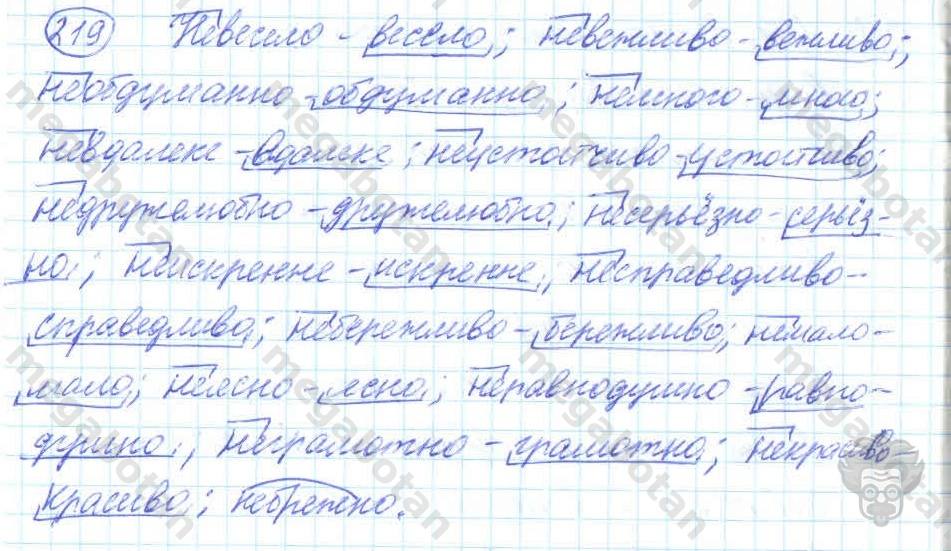 219 Невесело - весело; невежливо - вежливо;
необдуманно - обдуманно; немного - много;
невдалеке - вдалеке; неустойчиво - устойчиво;
недружелюбно - дружелюбно; несерьёзно - серьёз-
но; неискренне - искренне; несправедливо -
справедливо; небережливо - бережливо; немало -
мало; неясно - ясно; неравнодушно - равно-
душно; неграмотно - грамотно; некрасиво -
красиво; небрежно.
megabotan
megabotan
megabotan
megabotan
megabotan
megabotan
megabotan
megabotan